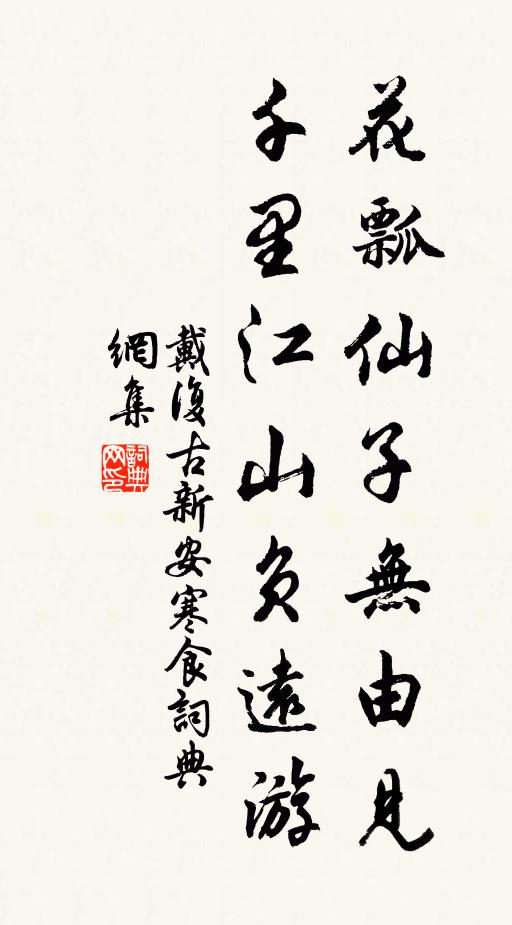 花瓢仙子無由見
千里江山負遠游
戴復古新安寒食詞典
網集
詞典網印